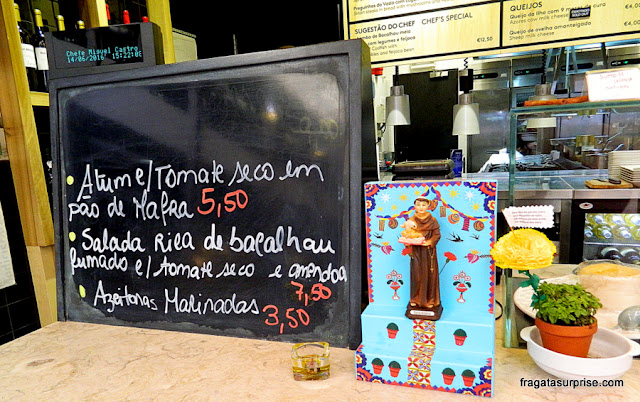 Chefe Miguel Castro
14/06/2016 15:22:02
Atum c/ Tomate seco em
pão de Mafra 5,50
Salada Rica de bacalhau
fumado c/ tomate seco e amêndoa
7,50
Azeitonas Marinadas
3,50
SUGESTÃO DO CHEF CHEF'S SPECIAL
com legumes e feijoca
€12,50
QUEIJOS
Queijo da ilha com 9 meses de cura
Azores cow milk cheese
Queijo de ovelha amanteigado
Sheep milk cheese
fragatasurprise.com